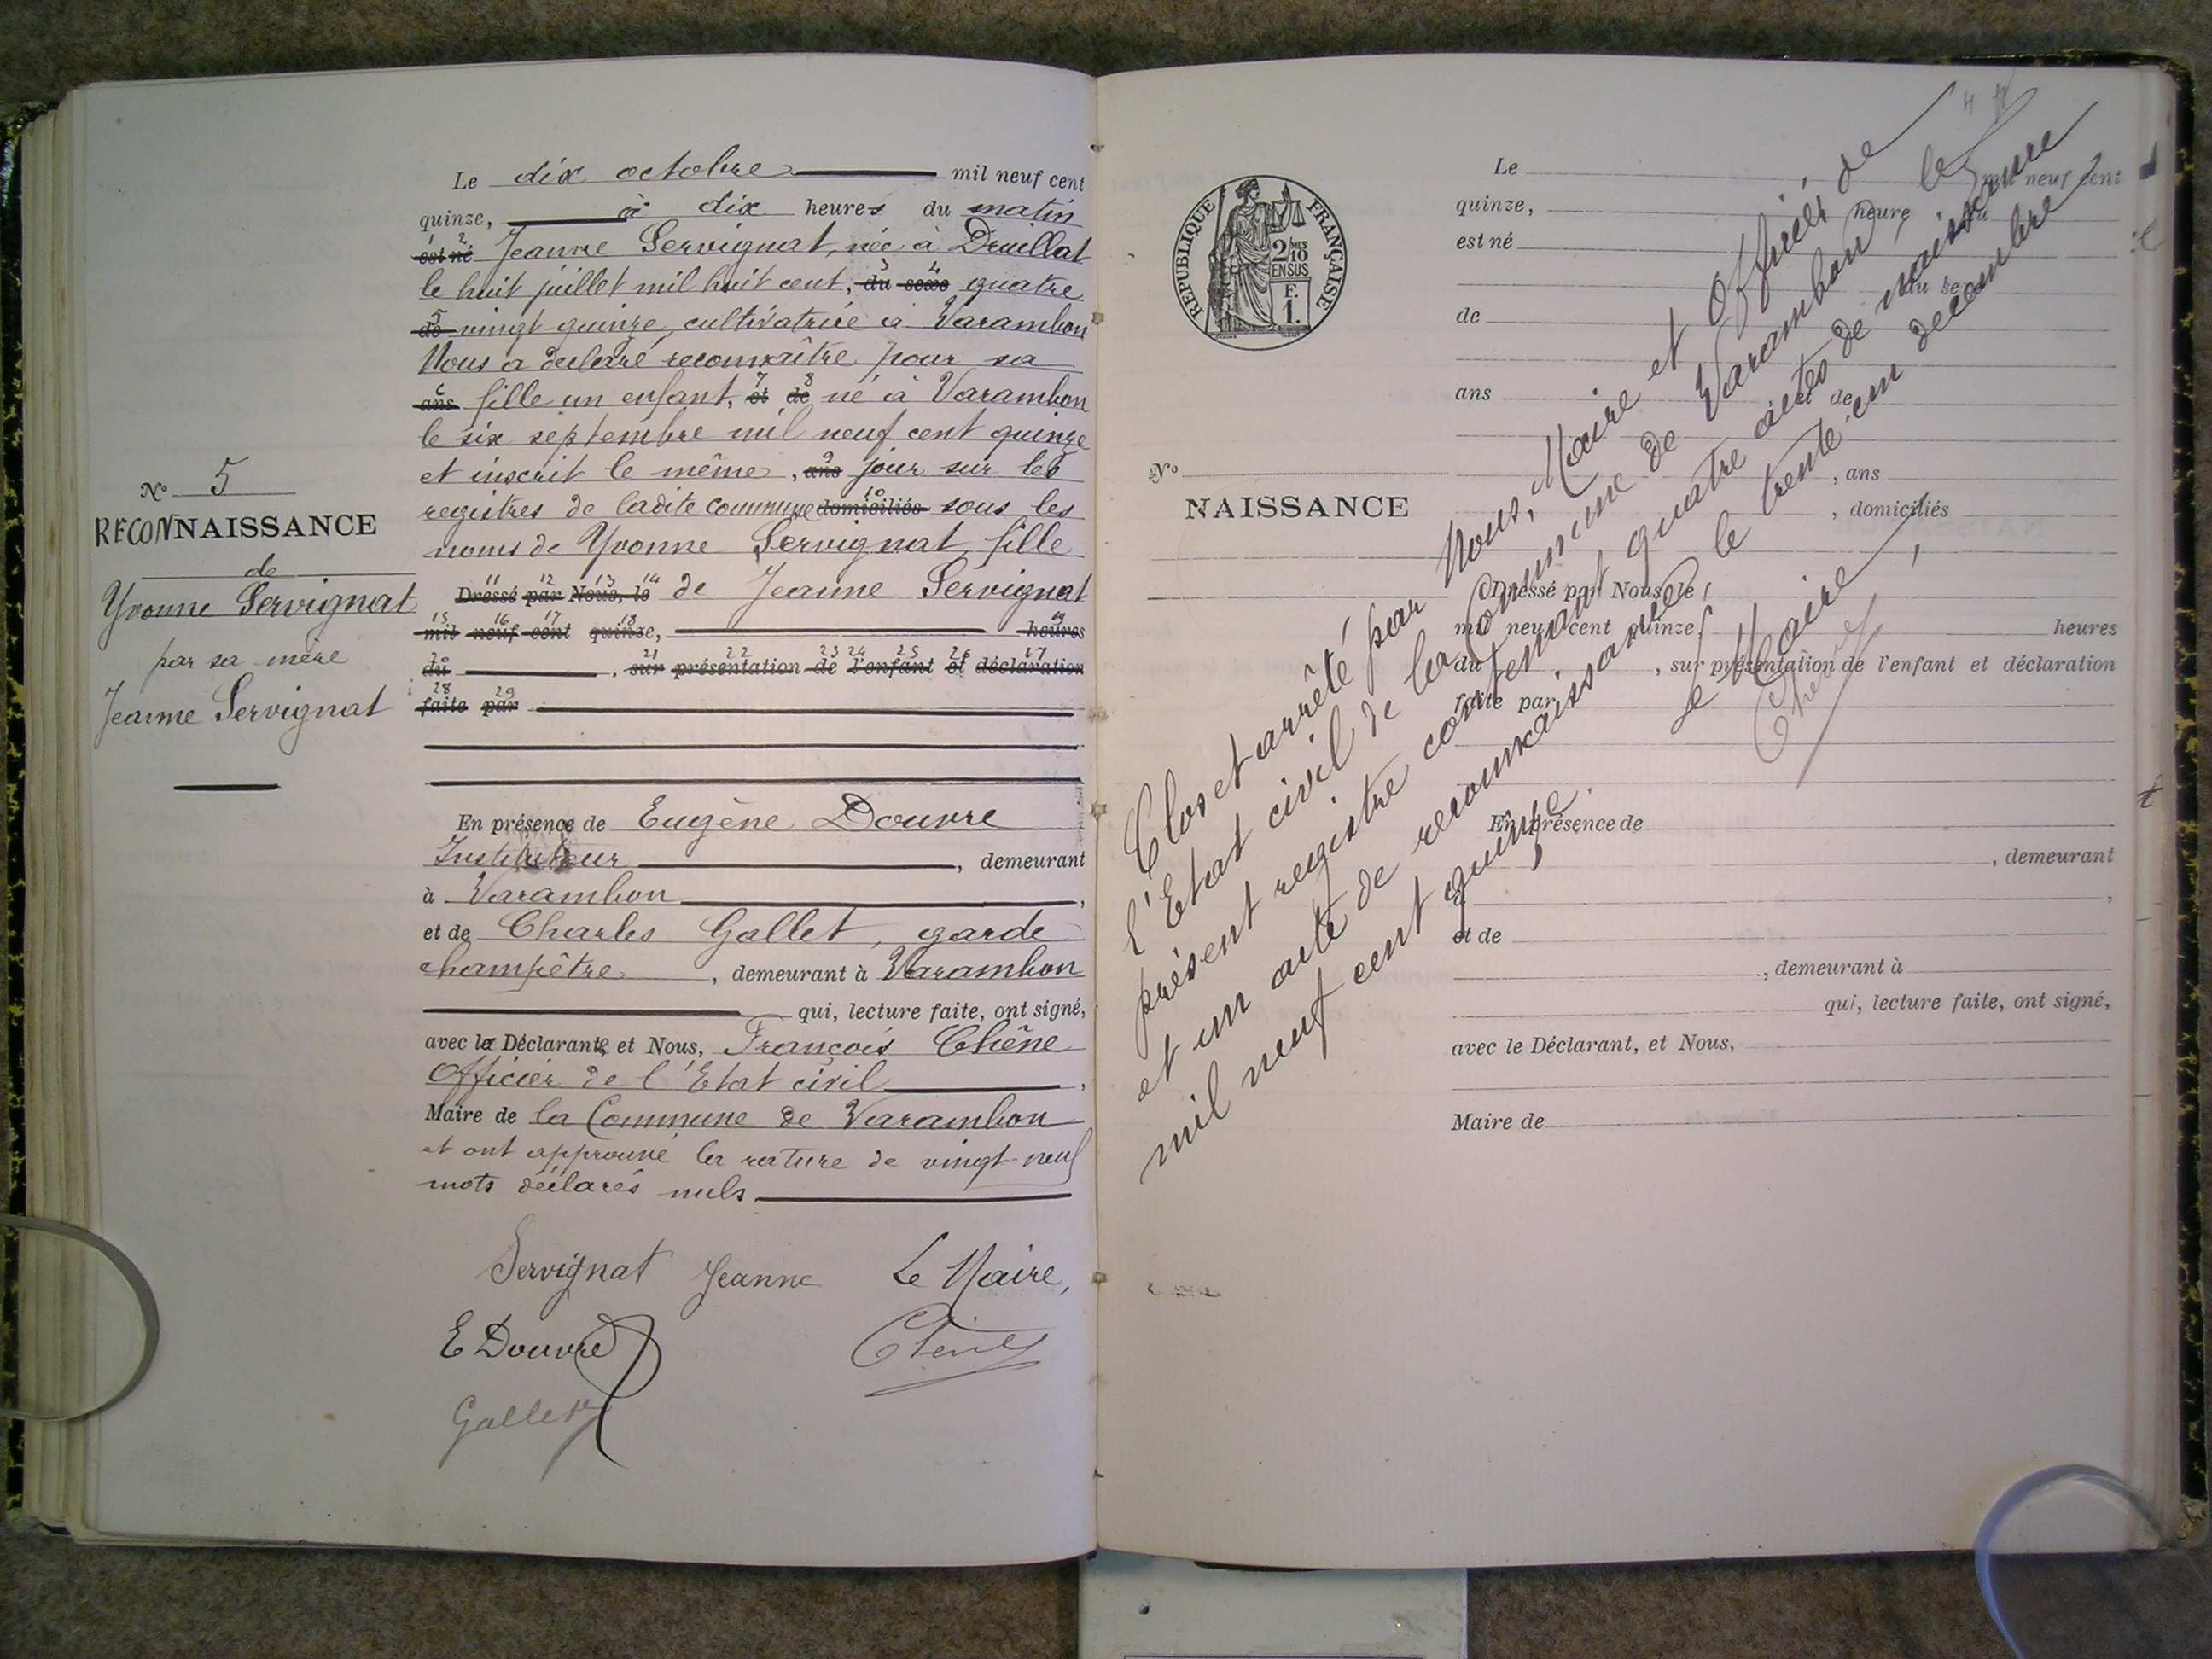 Le dix octobre mil neuf cent
quinze, à dix heures du matin
est né Jeanne Servignat, née à Druillat
le huit juillet mil huit cent, du sexe quatre
de vingt quinze, cultivatrice à Varambon
Nous a déclaré reconnaître pour sa
ans fille un enfant, et de né à Varambon
le six septembre mil neuf cent quinze
et inscrit le même, ans jour sur les
registres de ladite commune domiciliés sous les
noms de Yvonne Servignat, fille
Dressé par Nous, le de Jeanne Servignat
mil neuf cent quinze, heures
du , sur présentation de l'enfant et déclaration
faite par
En présence de Eugène Douvre
Instituteur , demeurant
à Varambon ,
et de Charles Gallet, garde
champêtre , demeurant à Varambon
qui, lecture faite, ont signé,
avec la Déclarante, et Nous, François Chêne
Officier de l'Etat civil ,
Maire de la Commune de Varambon
et ont approuvé la rature de vingt-neuf
mots déclarés nuls.
Servignat Jeanne Le Maire,
E Douvre Chêne
Gallet
N° 5
RECONNAISSANCE
de
Yvonne Servignat
par sa mère
Jeanne Servignat
RÉPUBLIQUE FRANÇAISE
2/MES
10
EN SUS
F.
1.
N°
NAISSANCE
Le mil neuf cent
quinze, heure du
est né
du sexe
de
ans et de
, ans
, domiciliés
Dressé par Nous, le
mil neuf cent quinze, heures
du , sur présentation de l'enfant et déclaration
faite par
En présence de
, demeurant
à ,
et de
, demeurant à
qui, lecture faite, ont signé,
avec le Déclarant, et Nous,
Maire de
Clos et arrêté par Nous, Maire et Officier de
l'Etat civil de la Commune de Varambon, le
présent registre contenant quatre actes de naissance
et un acte de reconnaissance le trente-un décembre
mil neuf cent quinze.
Le Maire,
Chêne